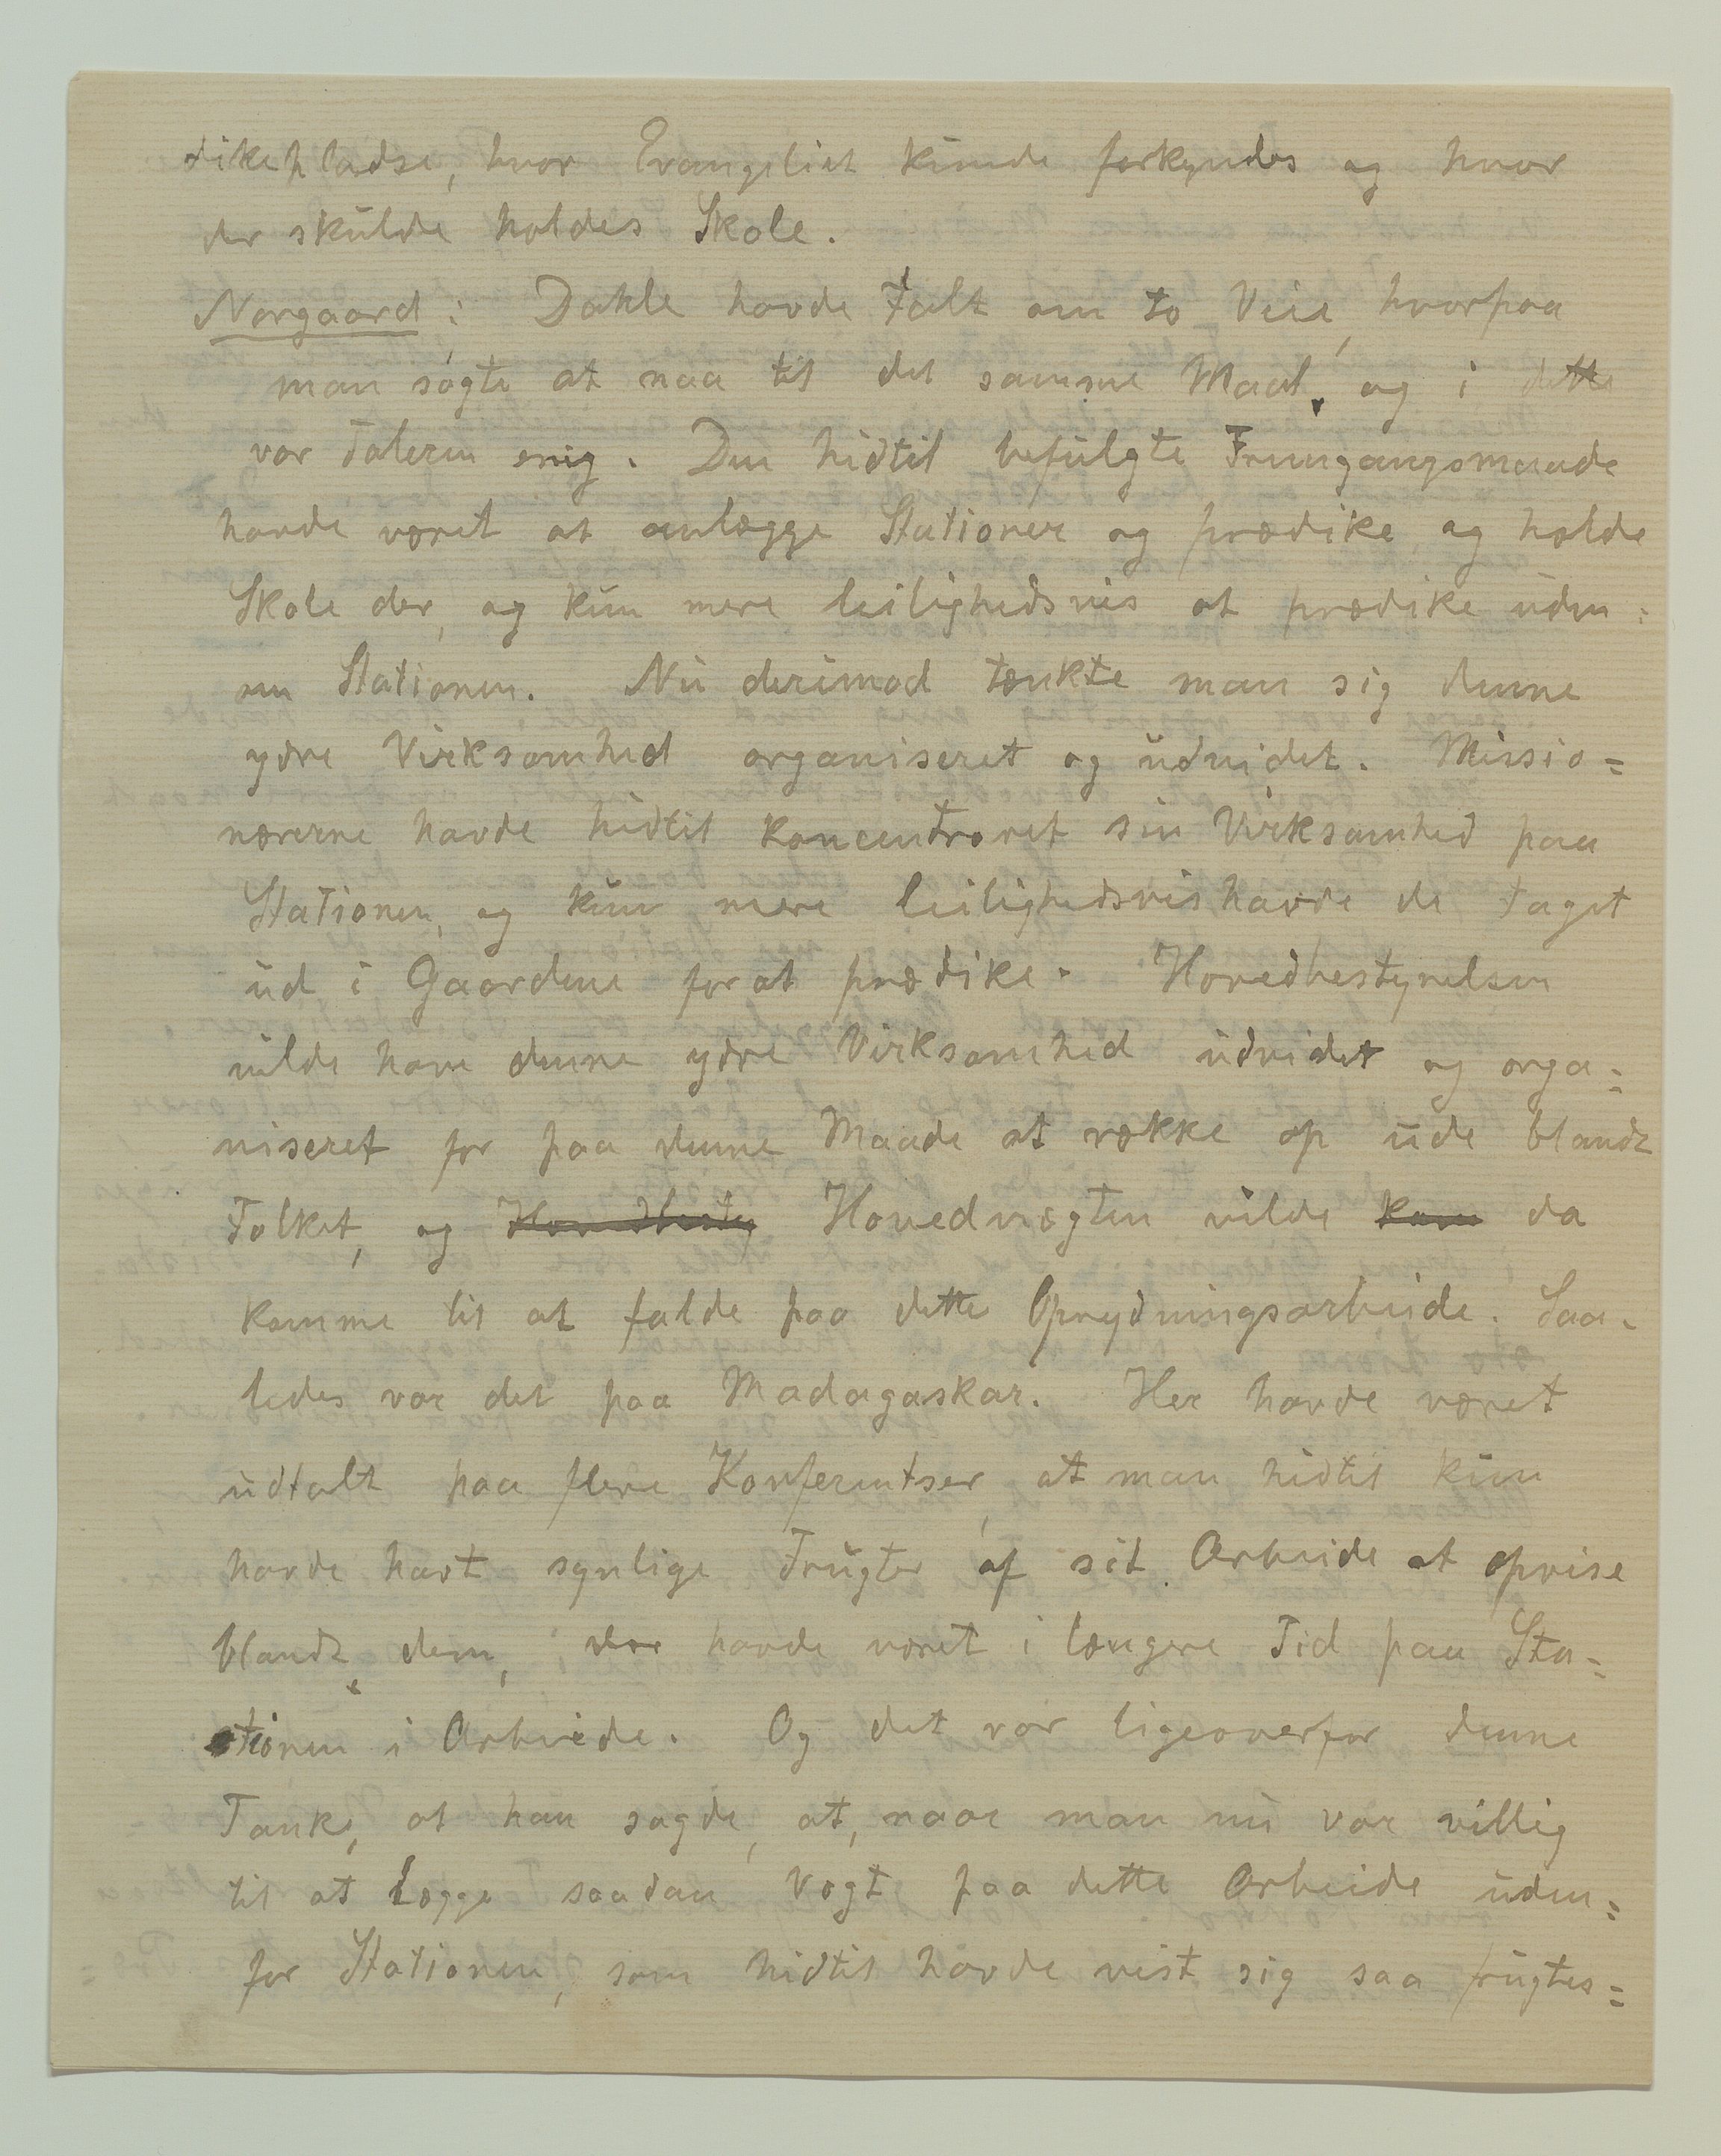 dikepladse, hvor Evangeliet kunde forkyndes og hvor
der skulde holdes Skole.
Norgaard: Dahle havde Talt om to Veie, hvorpaa
man søgte at naa til det samme Maal, og i dette
var Taleren enig. Den hidtil befulgte Fremgangsmaade
havde været at anlægge Stationer og prædike og holde
Skole der, og kun mere leilighedsvis at prædike uden=
om Stationen. Nu derimod tænkte man sig denne
ydre Virksomhed organiseret og udvidet. Missio=
nærerne havde hidtil koncentreret sin Virksomhed paa
Stationen, og kun mere leilighedsvis havde de taget
ud i Gaardene for at prædike. Hovedbestyrelsen
vilde have denne ydre Virksomhed udvidet og orga=
niseret for paa denne Maade at vække op ude blandt
Folket, og Hovedbesty Hovedvægten vilde kom da
komme til at falde paa dette Oprydningsarbeide. Saa-
ledes var det paa Madagaskar. Her havde været
udtalt paa flere Konferentser, at man hidtil kun
havde havt synlige Frugter af sit Arbeide at opvise
blandt dem, der havde været i længere Tid paa Sta=
tionen i Arbeide. Og det var ligeoverfor denne
Tanke, at han sagde, at, naar man nu var villig
til at lægge saadan Vægt paa dette Arbeide uden=
for Stationen, som hidtil havde vist sig saa frugtes=